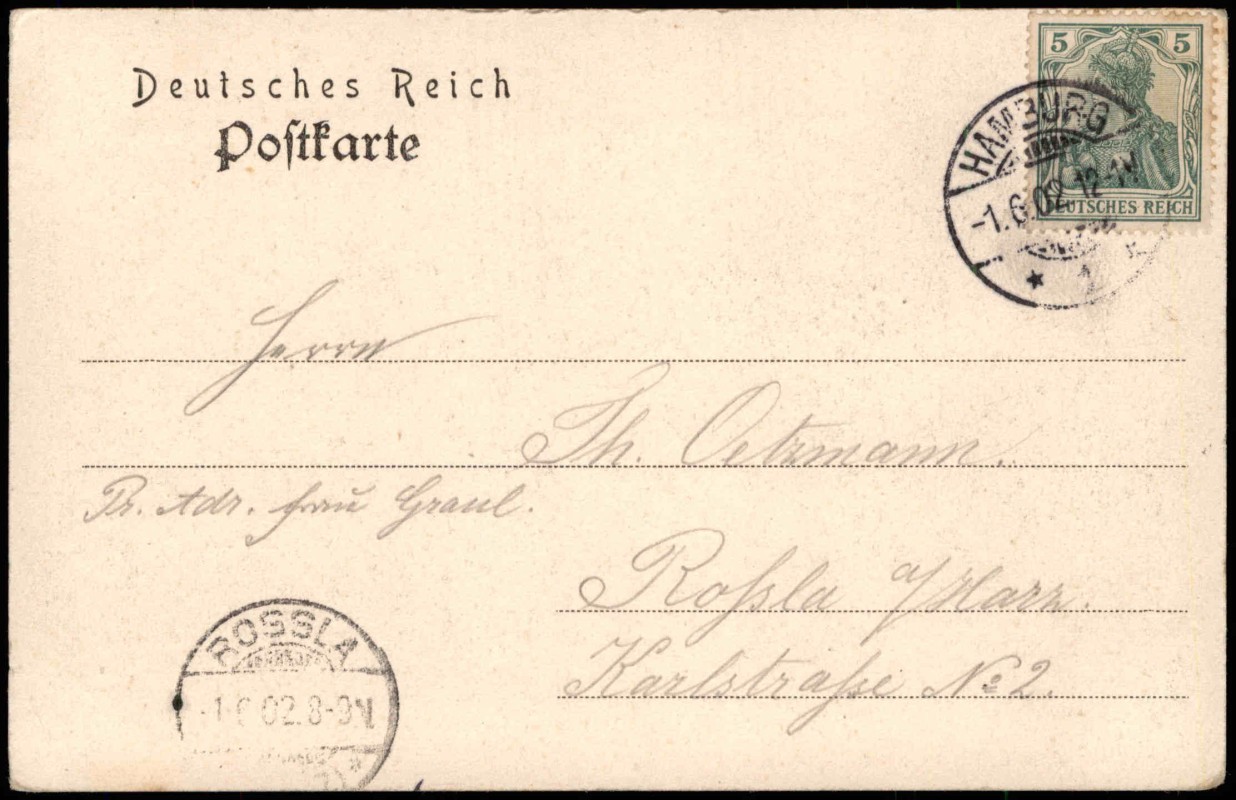 Deutsches Reich
Postkarte
5 5
DEUTSCHES REICH
HAMBURG
-1.6.02.12-1N
* 1
Herrn
Th. Oetzmann.
Pr. Adr. Frau Graul.
Roßla a/Harz.
Karlstraße No 2.
ROSSLA
-1.6.02.8-9N